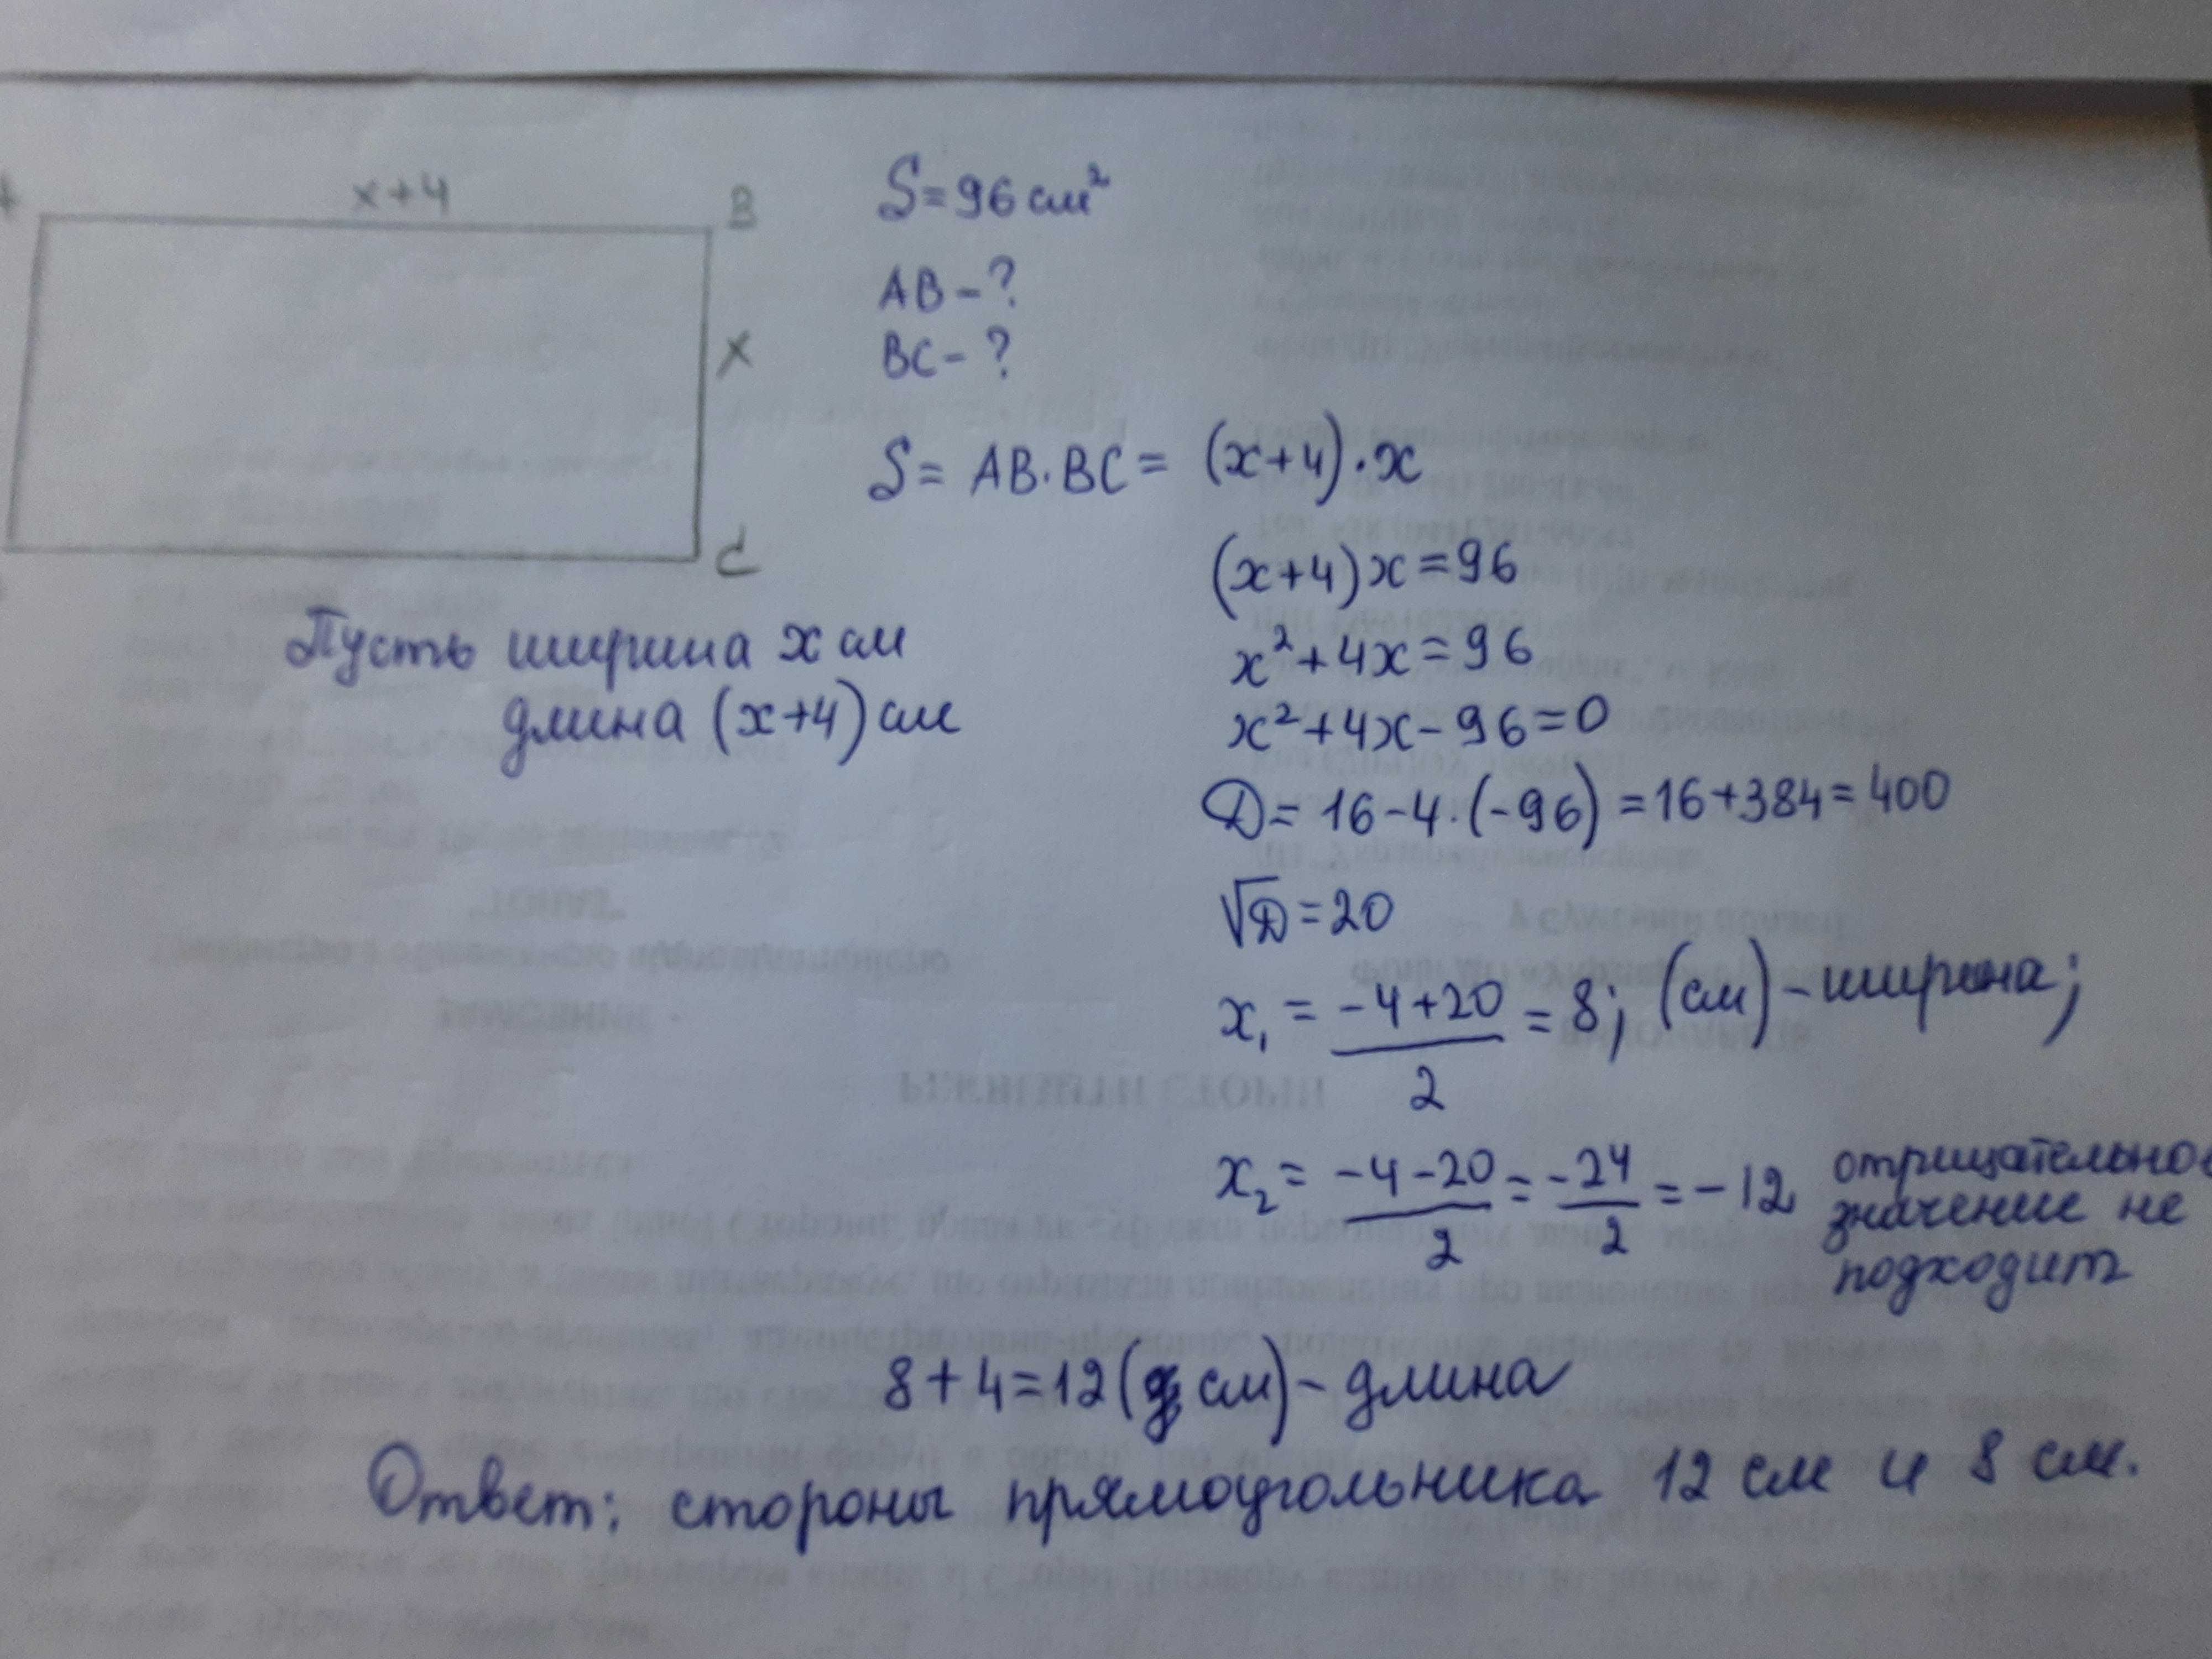 x+4
B
x
C
S=96 см²
AB-?
BC-?
S= AB·BC= (x+4)·x
(x+4)x=96
x²+4x=96
x²+4x-96=0
Пусть ширина x см
длина (x+4) см
D= 16-4·(-96)=16+384=400
√D=20
x₁ = (-4+20)/2 = 8; (см) - ширина;
x₂ = (-4-20)/2 = -24/2 = -12 отрицательное
значение не
подходит
8+4=12 (см) - длина
Ответ: стороны прямоугольника 12 см и 8 см.